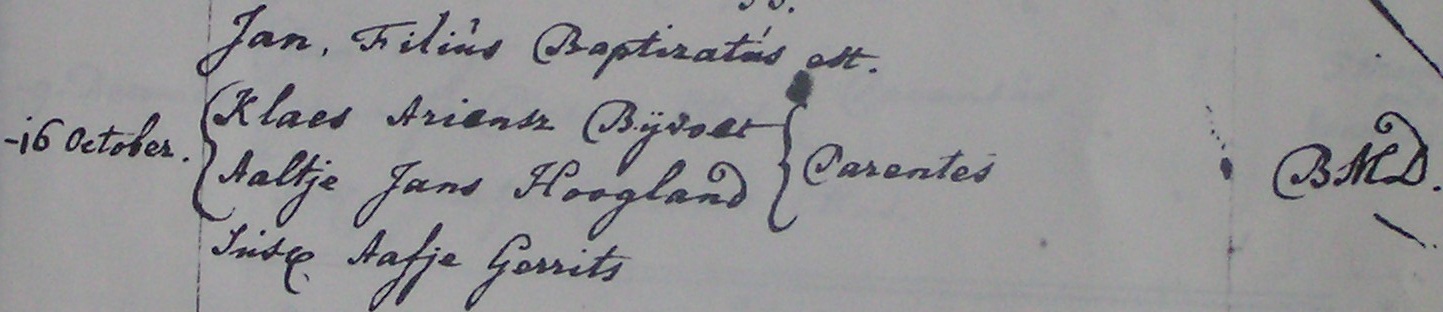 Jan, Filiús Baptizatús est.
-16 October. Klaes Ariensz Bÿvoet
Aaltje Jans Hoogland Parentes BMD.
Súsc. Aafje Gerrits